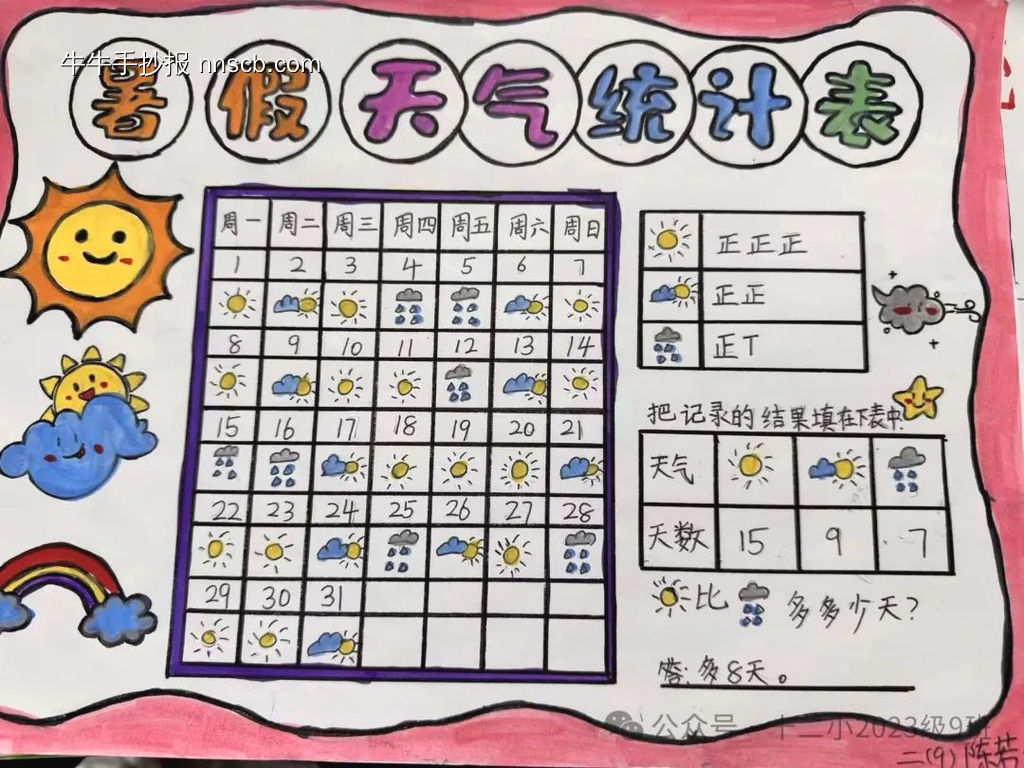 牛牛手抄报 nnscb.com
暑假天气统计表
周一 周二 周三 周四 周五 周六 周日
1 2 3 4 5 6 7
8 9 10 11 12 13 14
15 16 17 18 19 20 21
22 23 24 25 26 27 28
29 30 31
正正正
正正
正T
把记录的结果填在下表中.
天气
天数 15 9 7
比 多多少天?
答:多8天。
公众号 十二小2023级9班
二(9) 陈若